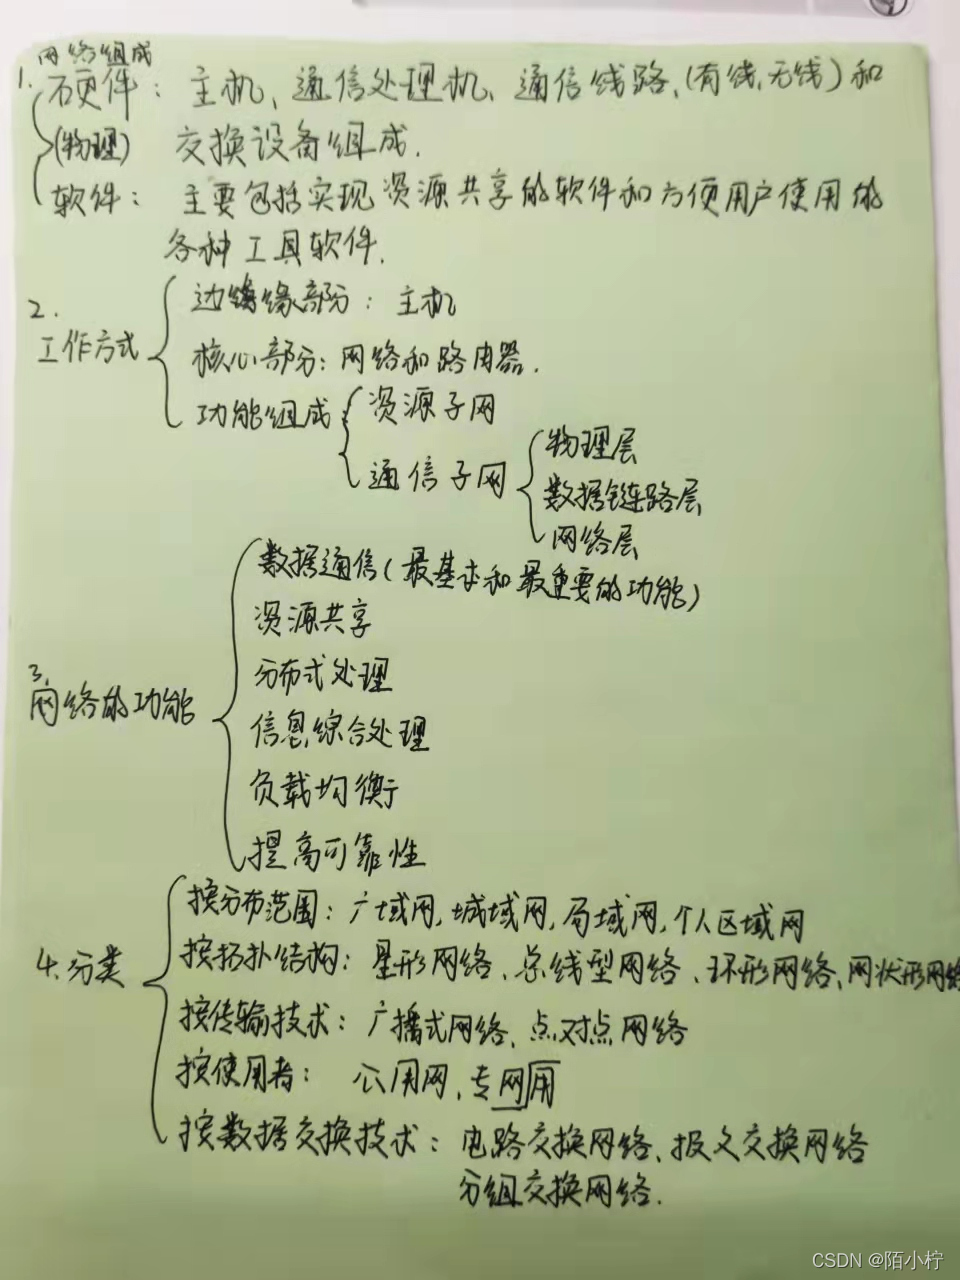 网络组成
1. 硬件：主机、通信处理机、通信线路、(有线,无线)和
(物理) 交换设备组成.
软件：主要包括实现资源共享的软件和方便用户使用的
各种工具软件.
2.
边缘部分：主机
工作方式
核心部分：网络和路由器.
功能组成 资源子网
通信子网 物理层
数据链路层
网络层
数据通信(最基本和最重要的功能)
资源共享
分布式处理
3. 网络的功能
信息综合处理
负载均衡
提高可靠性
按分布范围：广域网,城域网,局域网,个人区域网
4.分类 按拓扑结构：星形网络、总线型网络、环形网络、网状形网络
按传输技术：广播式网络、点对点网络
按使用者：公用网、专网用
按数据交换技术：电路交换网络、报文交换网络
分组交换网络.
CSDN @陌小柠